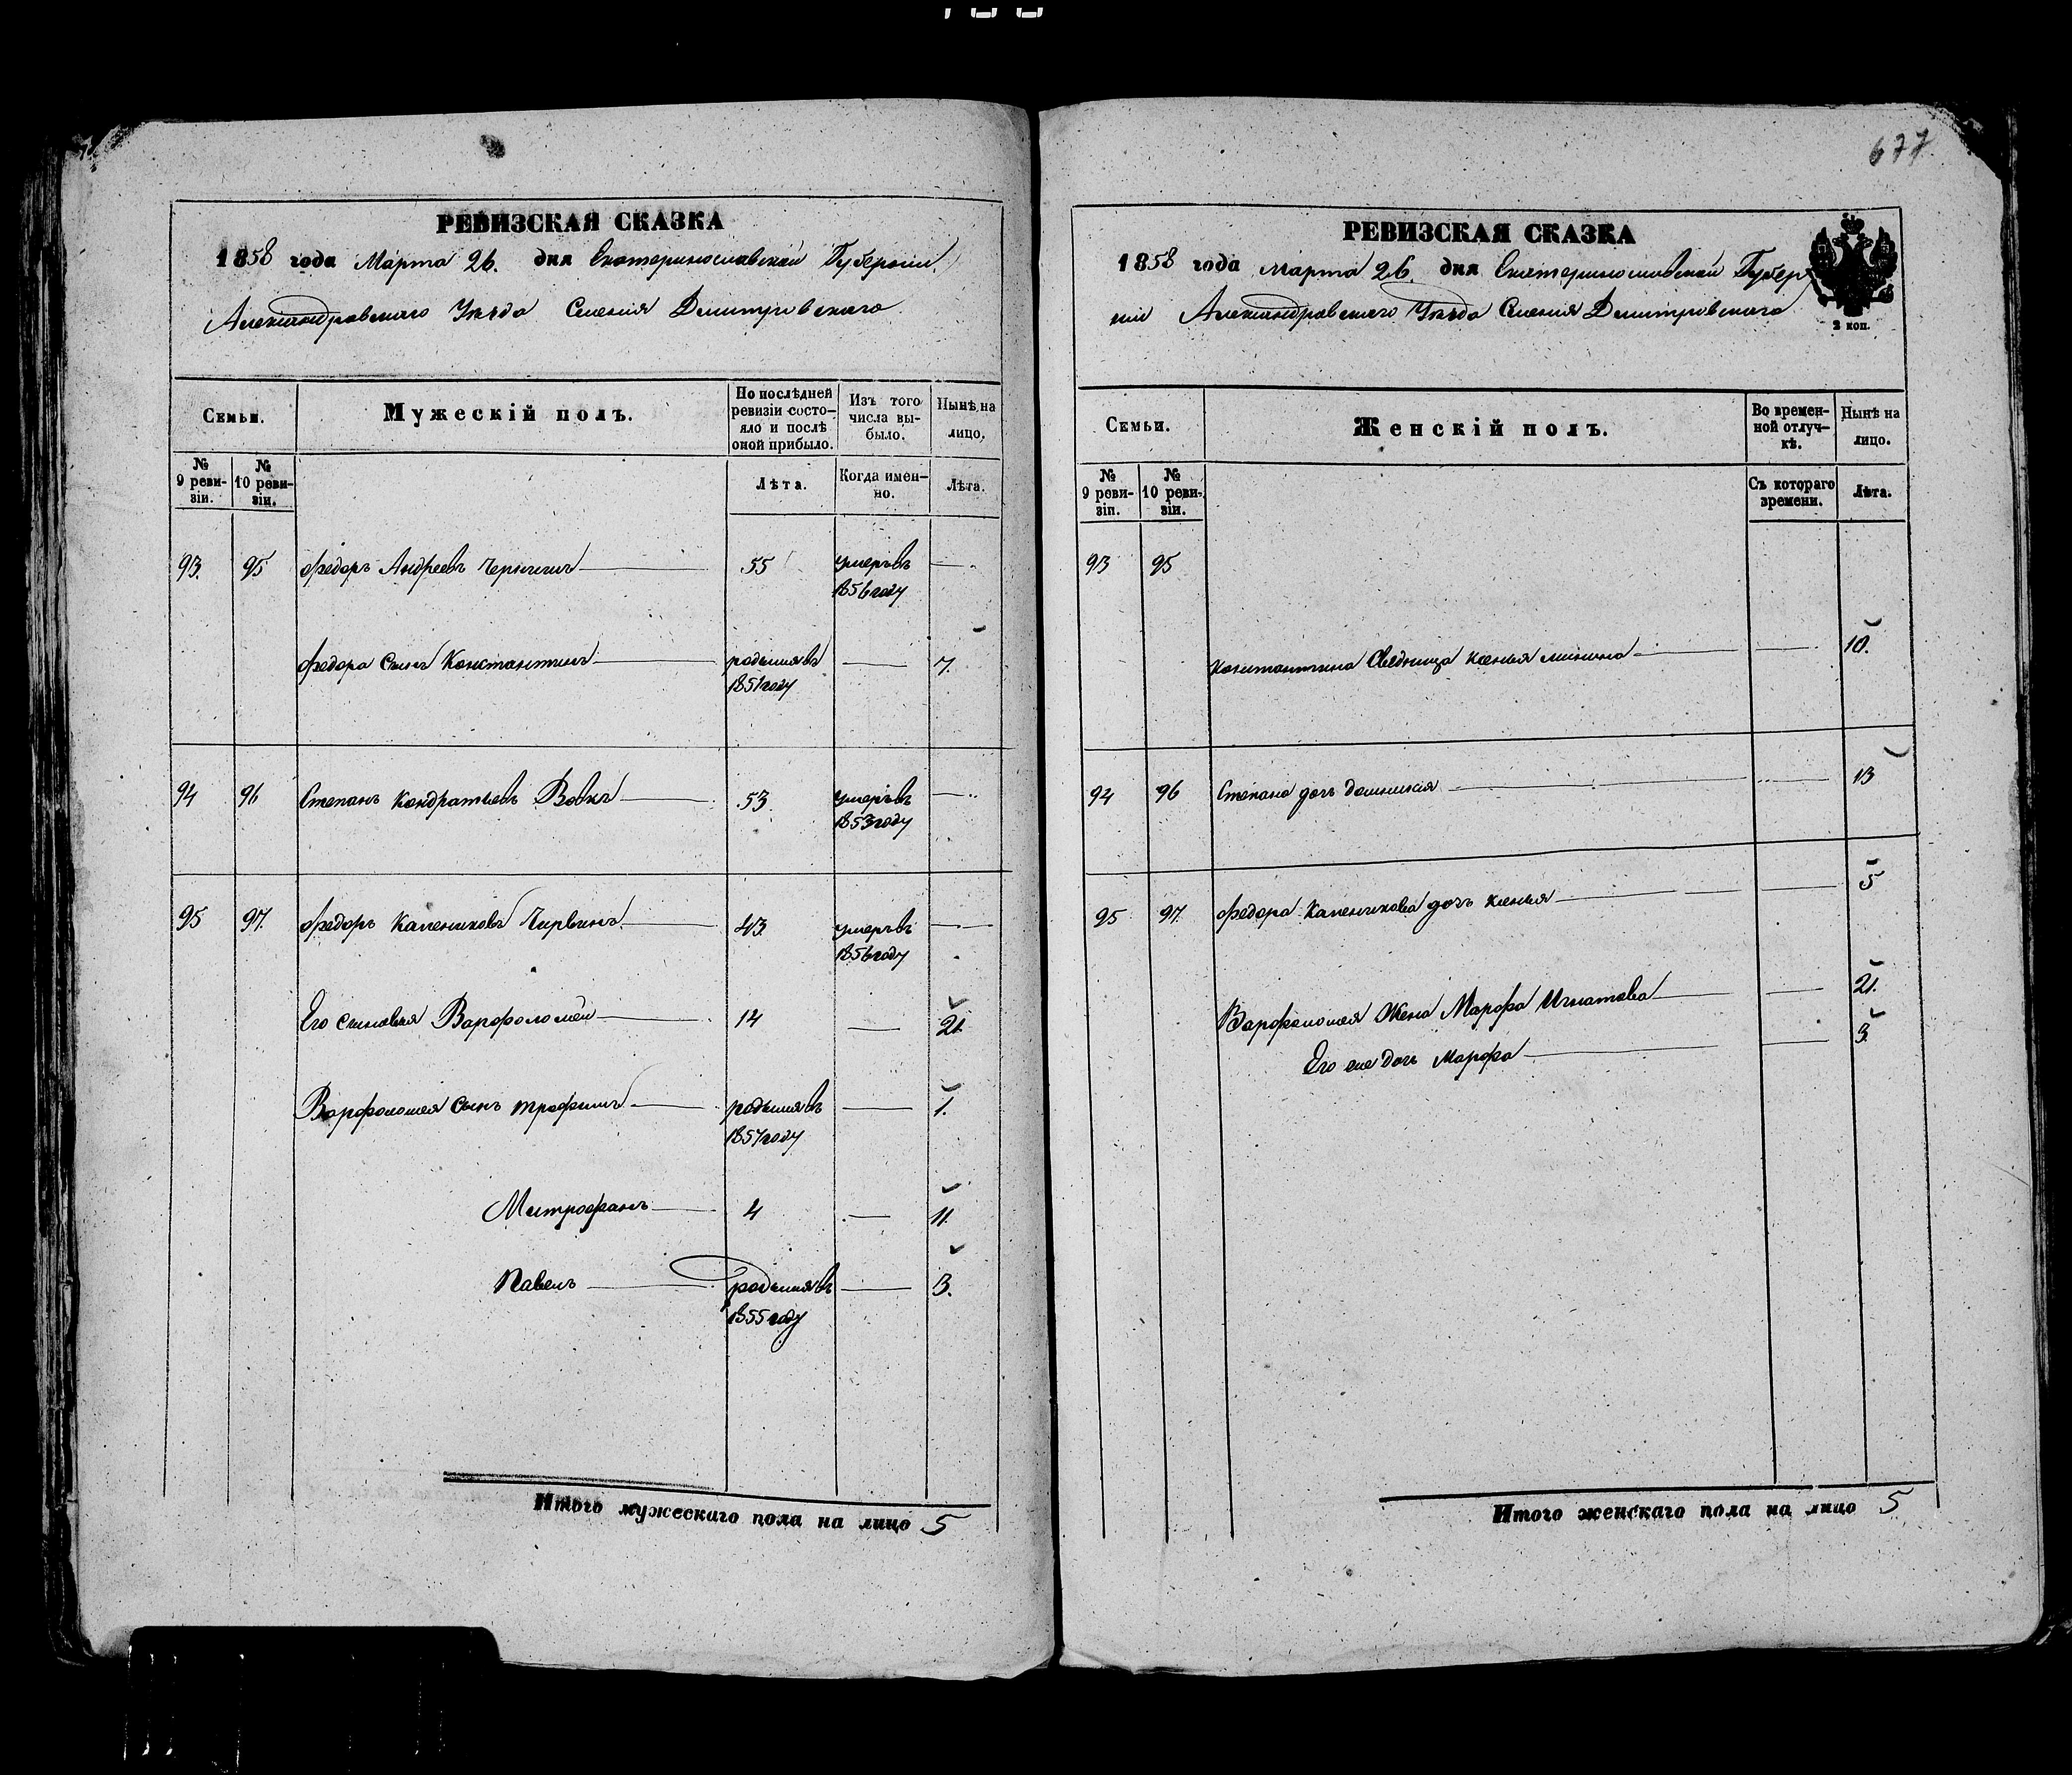 677
РЕВИЗСКАЯ СКАЗКА
1858 года Марта 26. дня Екатеринославской Губернии
Александровскаго Уѣзда Селенія Дмитровскаго
Семьи.
Мужескій полъ.
По послѣдней ревизіи состо-
яло и послѣ оной прибыло.
Изъ того числа вы-
было.
Нынѣ на лицо.
№ 9 реви-
зіи.
№ 10 реви-
зіи.
Лѣта.
Когда имен-
но.
Лѣта.
93. 95 Федоръ Андреевъ 55 умеръ въ
1856 году
Федора сынъ Константинъ родился въ 7.
1851 году
94 96 Степанъ Кондратьевъ Вовкъ 53. умеръ въ
1853 году
95 97. Федоръ 43. умеръ въ
1856 году
Его сыновья Варфоломей 14 21.
Варфоломея сынъ Трофимъ родился въ 1.
1857 году
Митрофанъ 4 11.
Павелъ родился въ 3.
1855 году
Итого мужескаго пола на лицо 5
РЕВИЗСКАЯ СКАЗКА
1858 года Марта 26. дня Екатеринославской Губер
ніи Александровскаго Уѣзда Селенія Дмитровскаго
2 коп.
Семьи.
Женскій полъ.
Во времен-
ной отлуч-
кѣ.
Нынѣ на лицо.
№ 9 реви-
зіи.
№ 10 реви-
зіи.
Съ котораго времени.
Лѣта.
93 95
Константина Ксенья 10.
94 96 Степана дочь 13
95 97. Федора дочь Ксенья 5
Варфоломея Жена Марфа Игнатова 21.
Его же дочь Марфа 3.
Итого женскаго пола на лицо 5